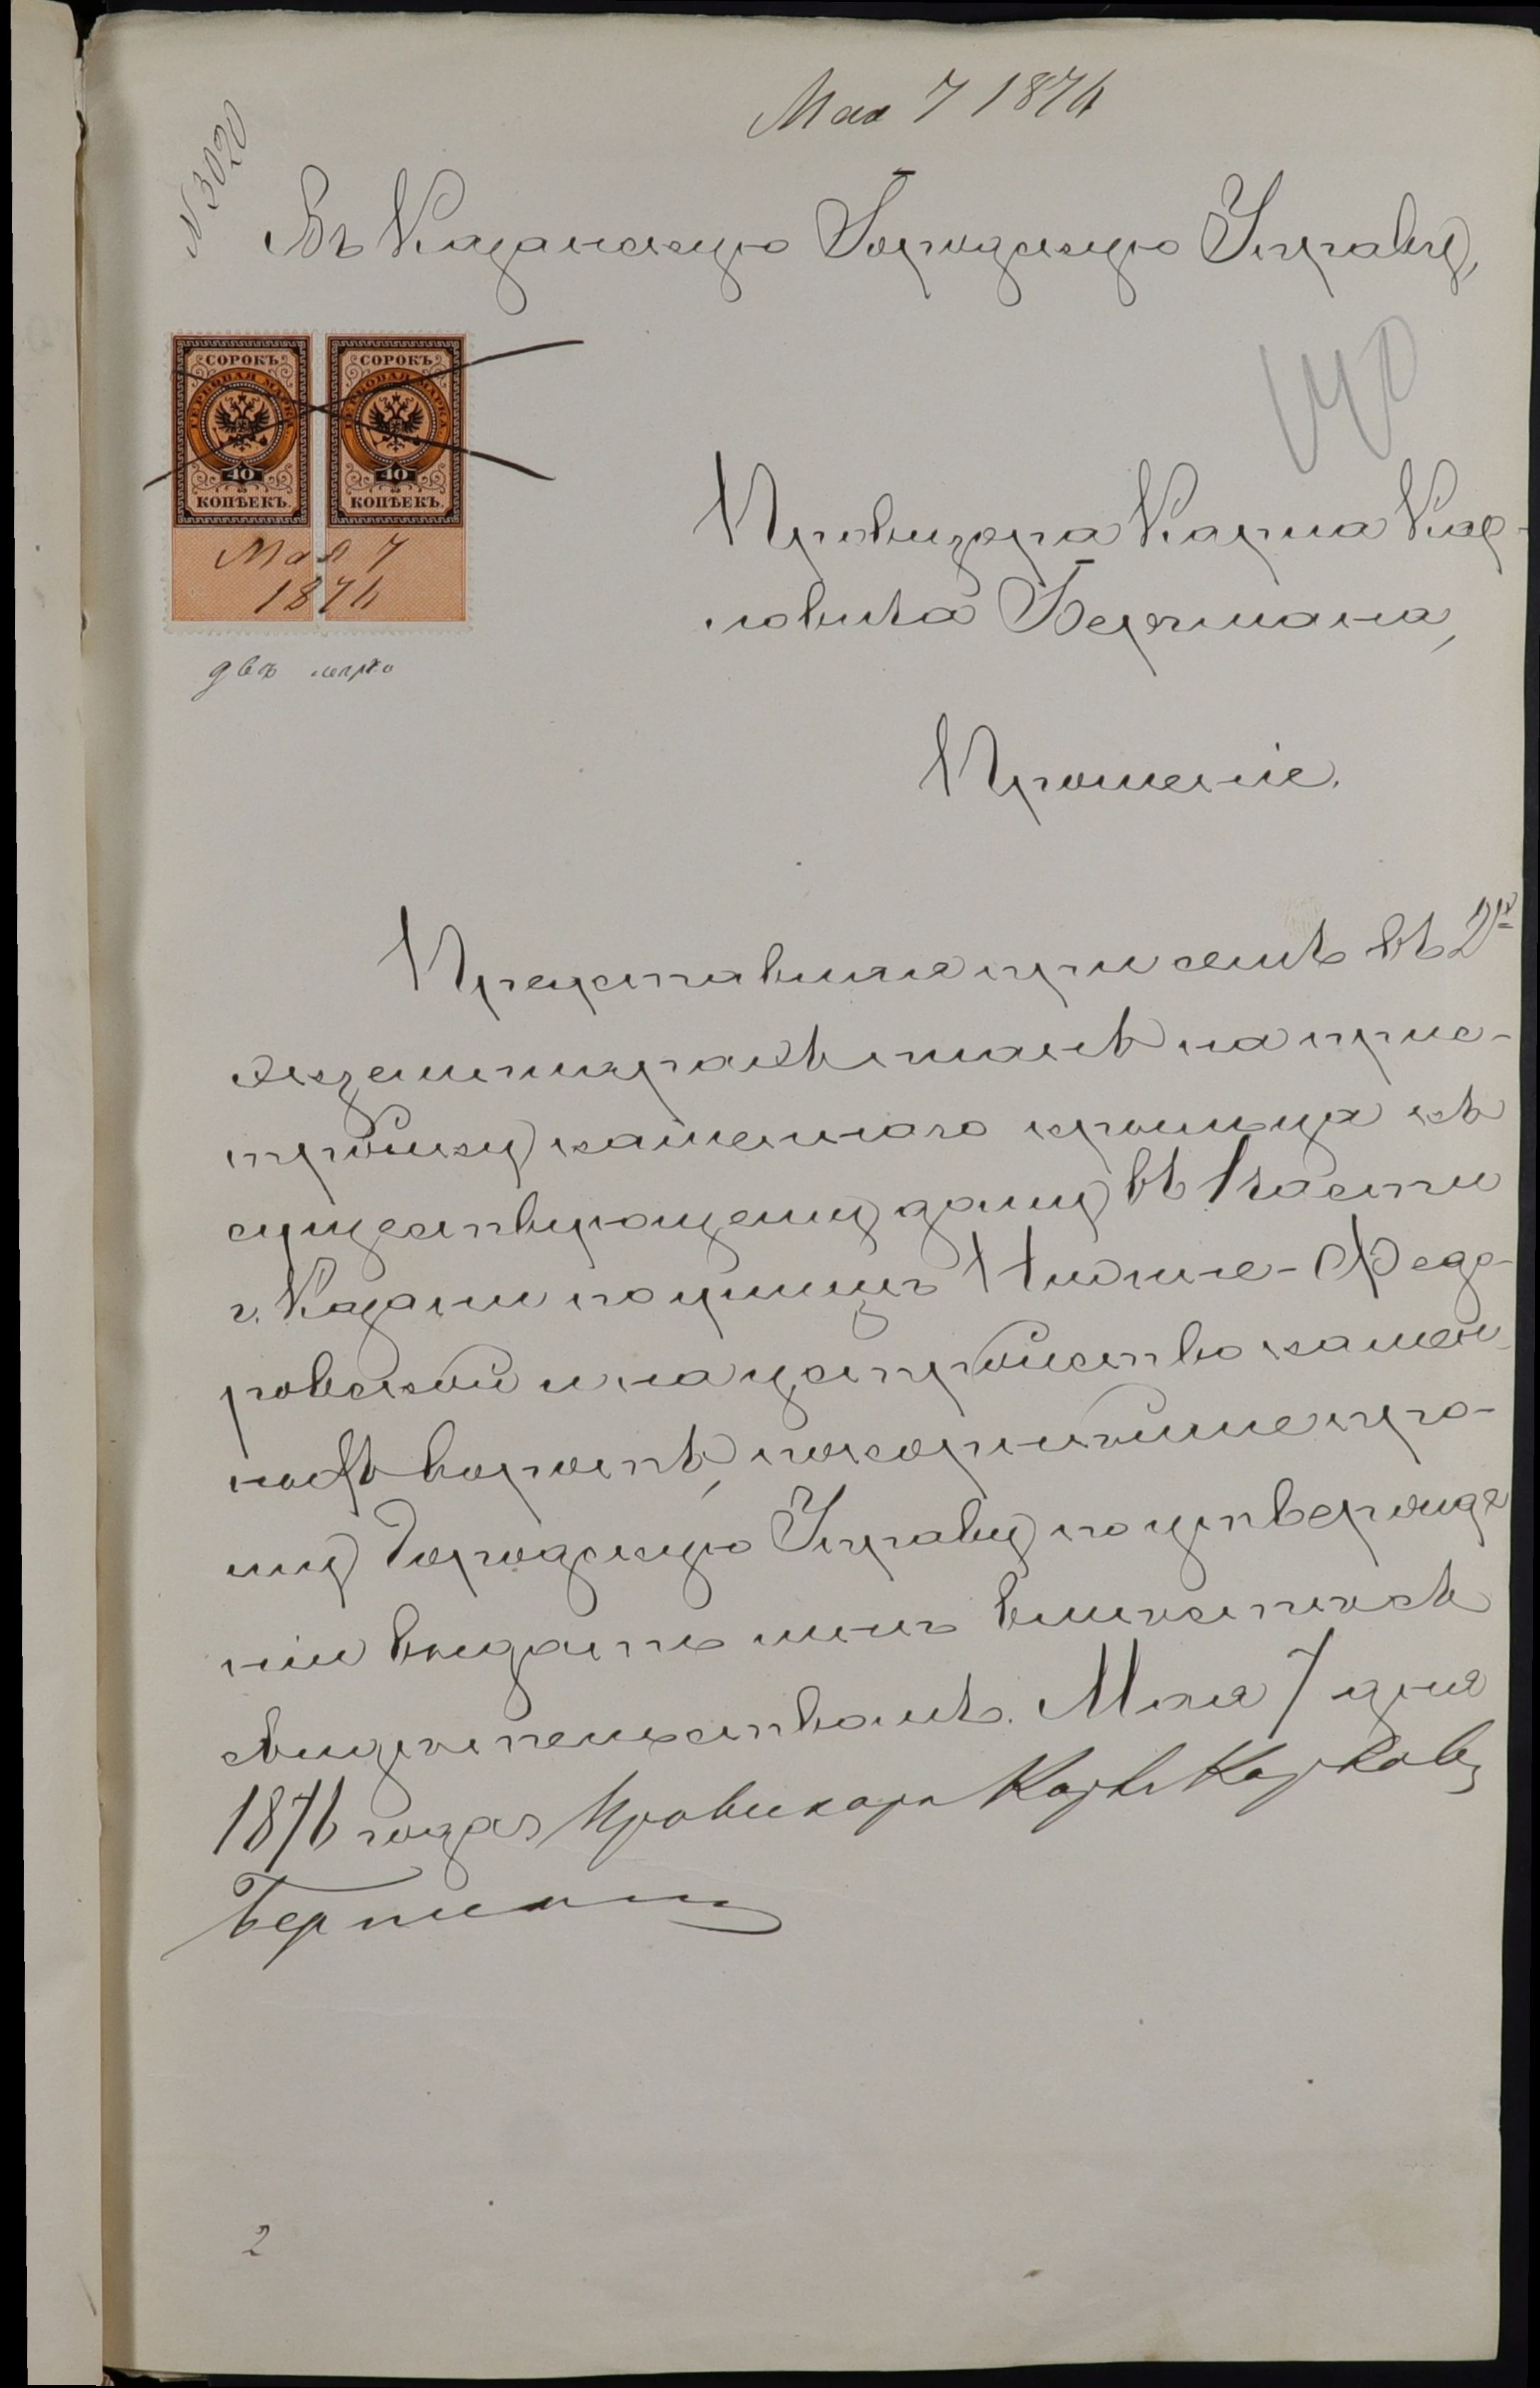 Мая 7 1876
N 3020
Въ Казанскую Городскую Управу,
СОРОКЪ СОРОКЪ
ГЕРБОВАЯ МАРКА. ГЕРБОВАЯ МАРКА.
40 40
КОПѢЕКЪ. КОПѢЕКЪ.
Мая 7
1876
двѣ марки
Провизора Карла Кар-
ловича Бергмана,
Прошеніе.
Представляя при семъ въ 2хъ
экземплярахъ планъ на прис-
тройку каменнаго крыльца къ
существующему дому въ 1 части
г. Казани по улицѣ Нижне-Федо-
ровской и на устройство камен-
ныхъ воротъ, покорнѣйше про-
шу Городскую Управу по утвержде
ніи выдать мнѣ вмѣстѣ съ
свидѣтельствомъ. Мая 7 дня
1876 года Провизоръ Карлъ Карловъ
Бергманъ
2